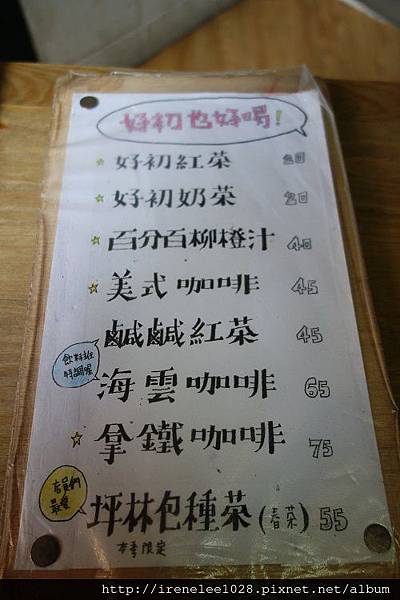 好初也好喝!
好初紅茶 20
好初奶茶 20
百分百柳橙汁 40
美式咖啡 45
鹹鹹紅茶 45
飲料維
特調喔
海雲咖啡 65
拿鐵咖啡 75
店員們
最愛
坪林包種茶(春茶) 55
本季限定
http://irenelee1028.pixnet.net/album